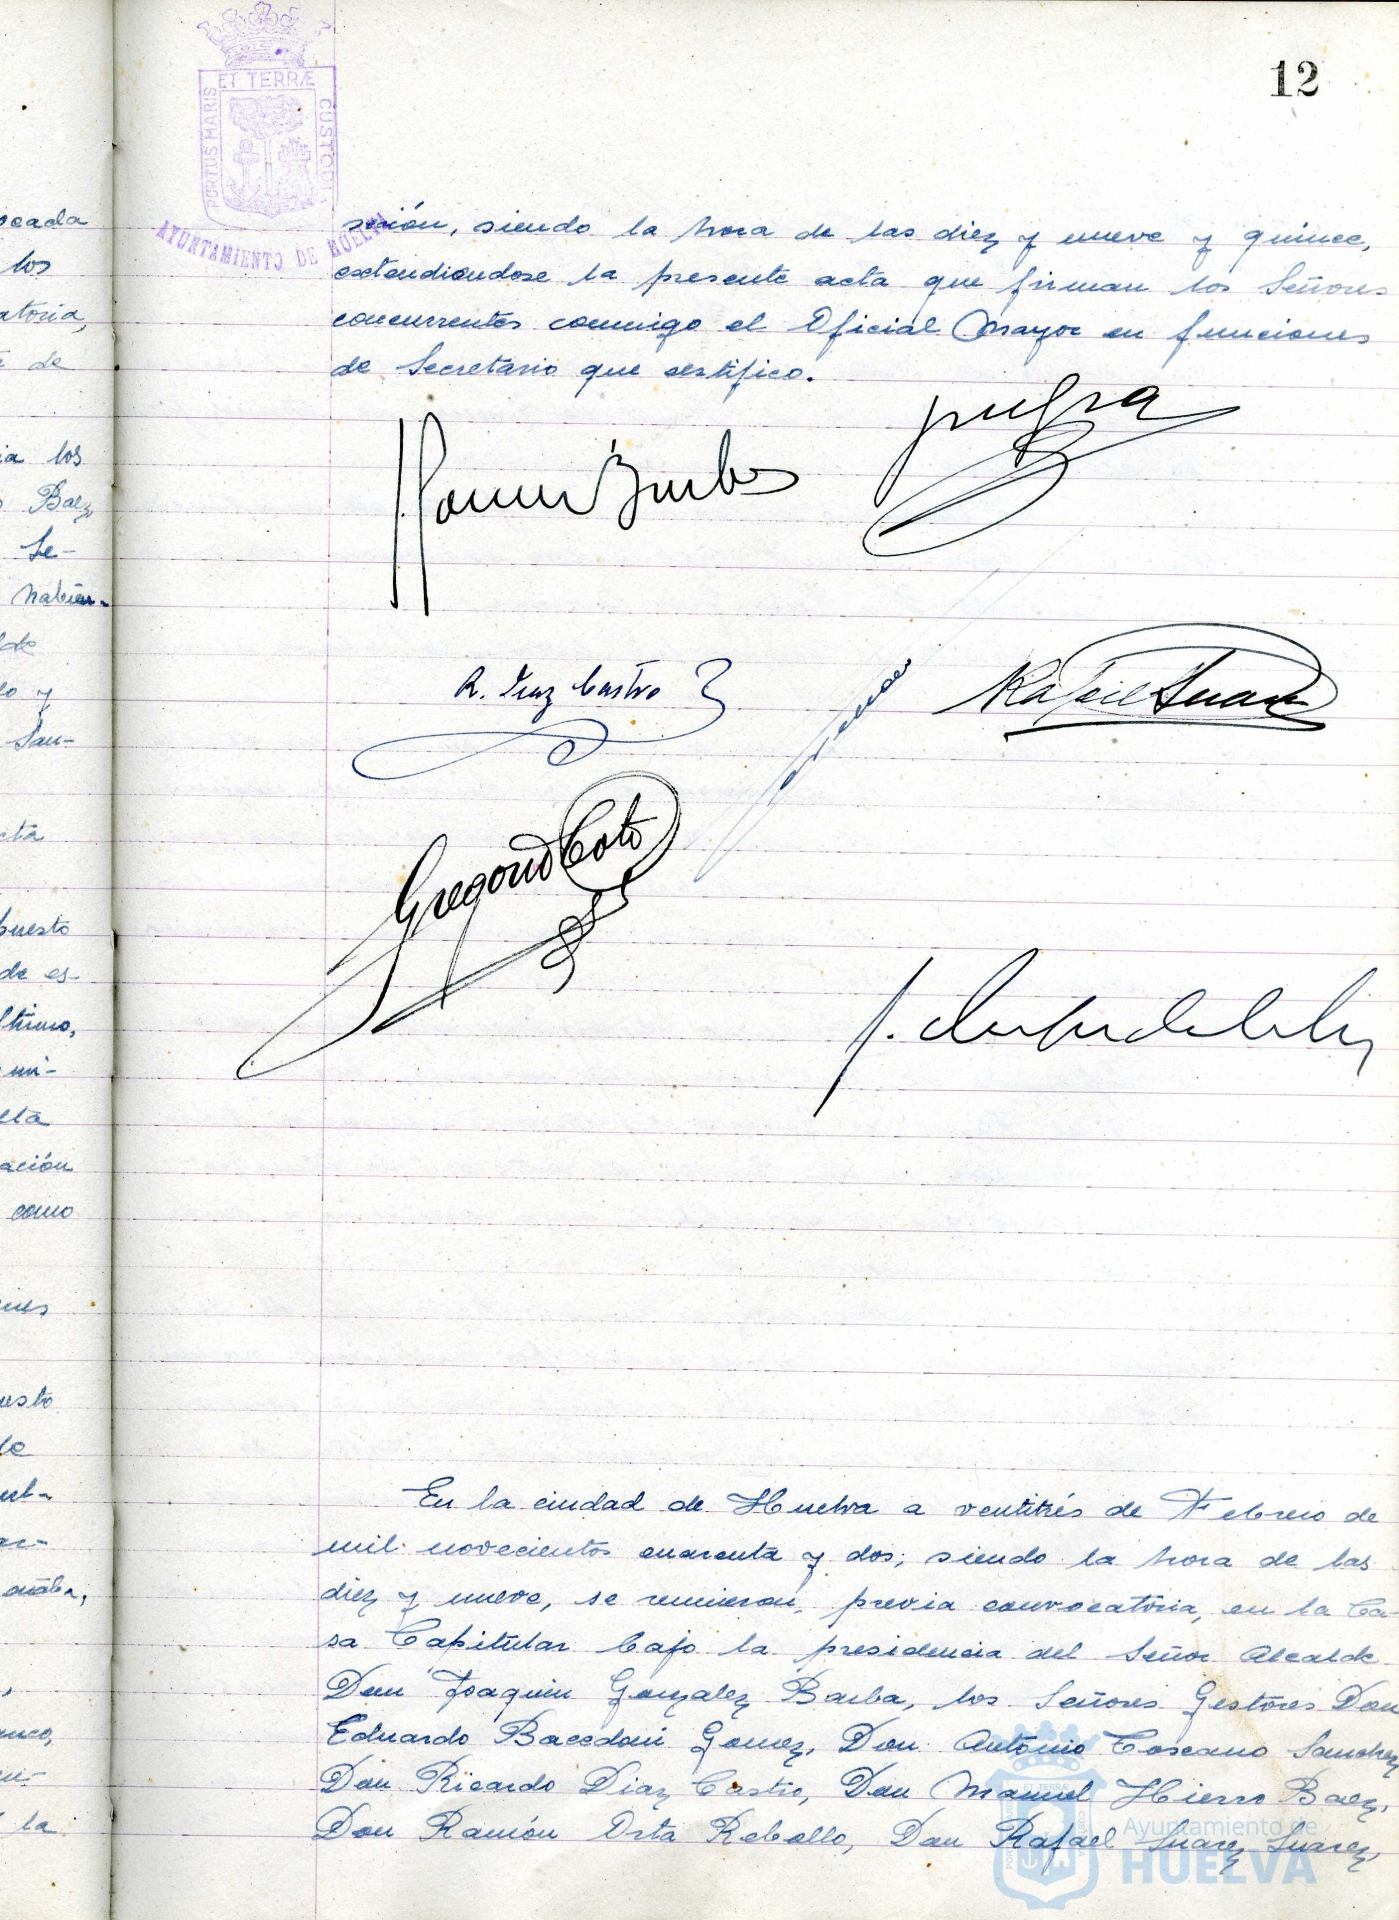 12
PORTUS MARIS ET TERRÆ CUSTODI
AYUNTAMIENTO DE HUELVA
sesión, siendo la hora de las diez y nueve y quince,
extendiendose la presente acta que firman los Señores
concurrentes conmigo el Oficial Mayor en funciones
de Secretario que certifico.
R. Diaz Castro
Rafael Suarez
Gregorio Coto
En la ciudad de Huelva a ventitrés de Febrero de
mil novecientos cuarenta y dos; siendo la hora de las
diez y nueve, se reunieron, previa convocatoria, en la Ca
sa Capitular bajo la presidencia del Señor Alcalde
Don Joaquin Gonzalez Barba, los Señores Gestores Don
Eduardo Bacedoni Gomez, Don Antonio Toscano Sanchez
Don Ricardo Diaz Castro, Don Manuel Hierro Baez,
Don Ramón Orta Rebollo, Don Rafael Suarez Suarez,
Ayuntamiento de
HUELVA
los
atoria,
de
ia los
Baez
Se-
habien-
y
San-
puesto
de es-
mi-
ación
como
la